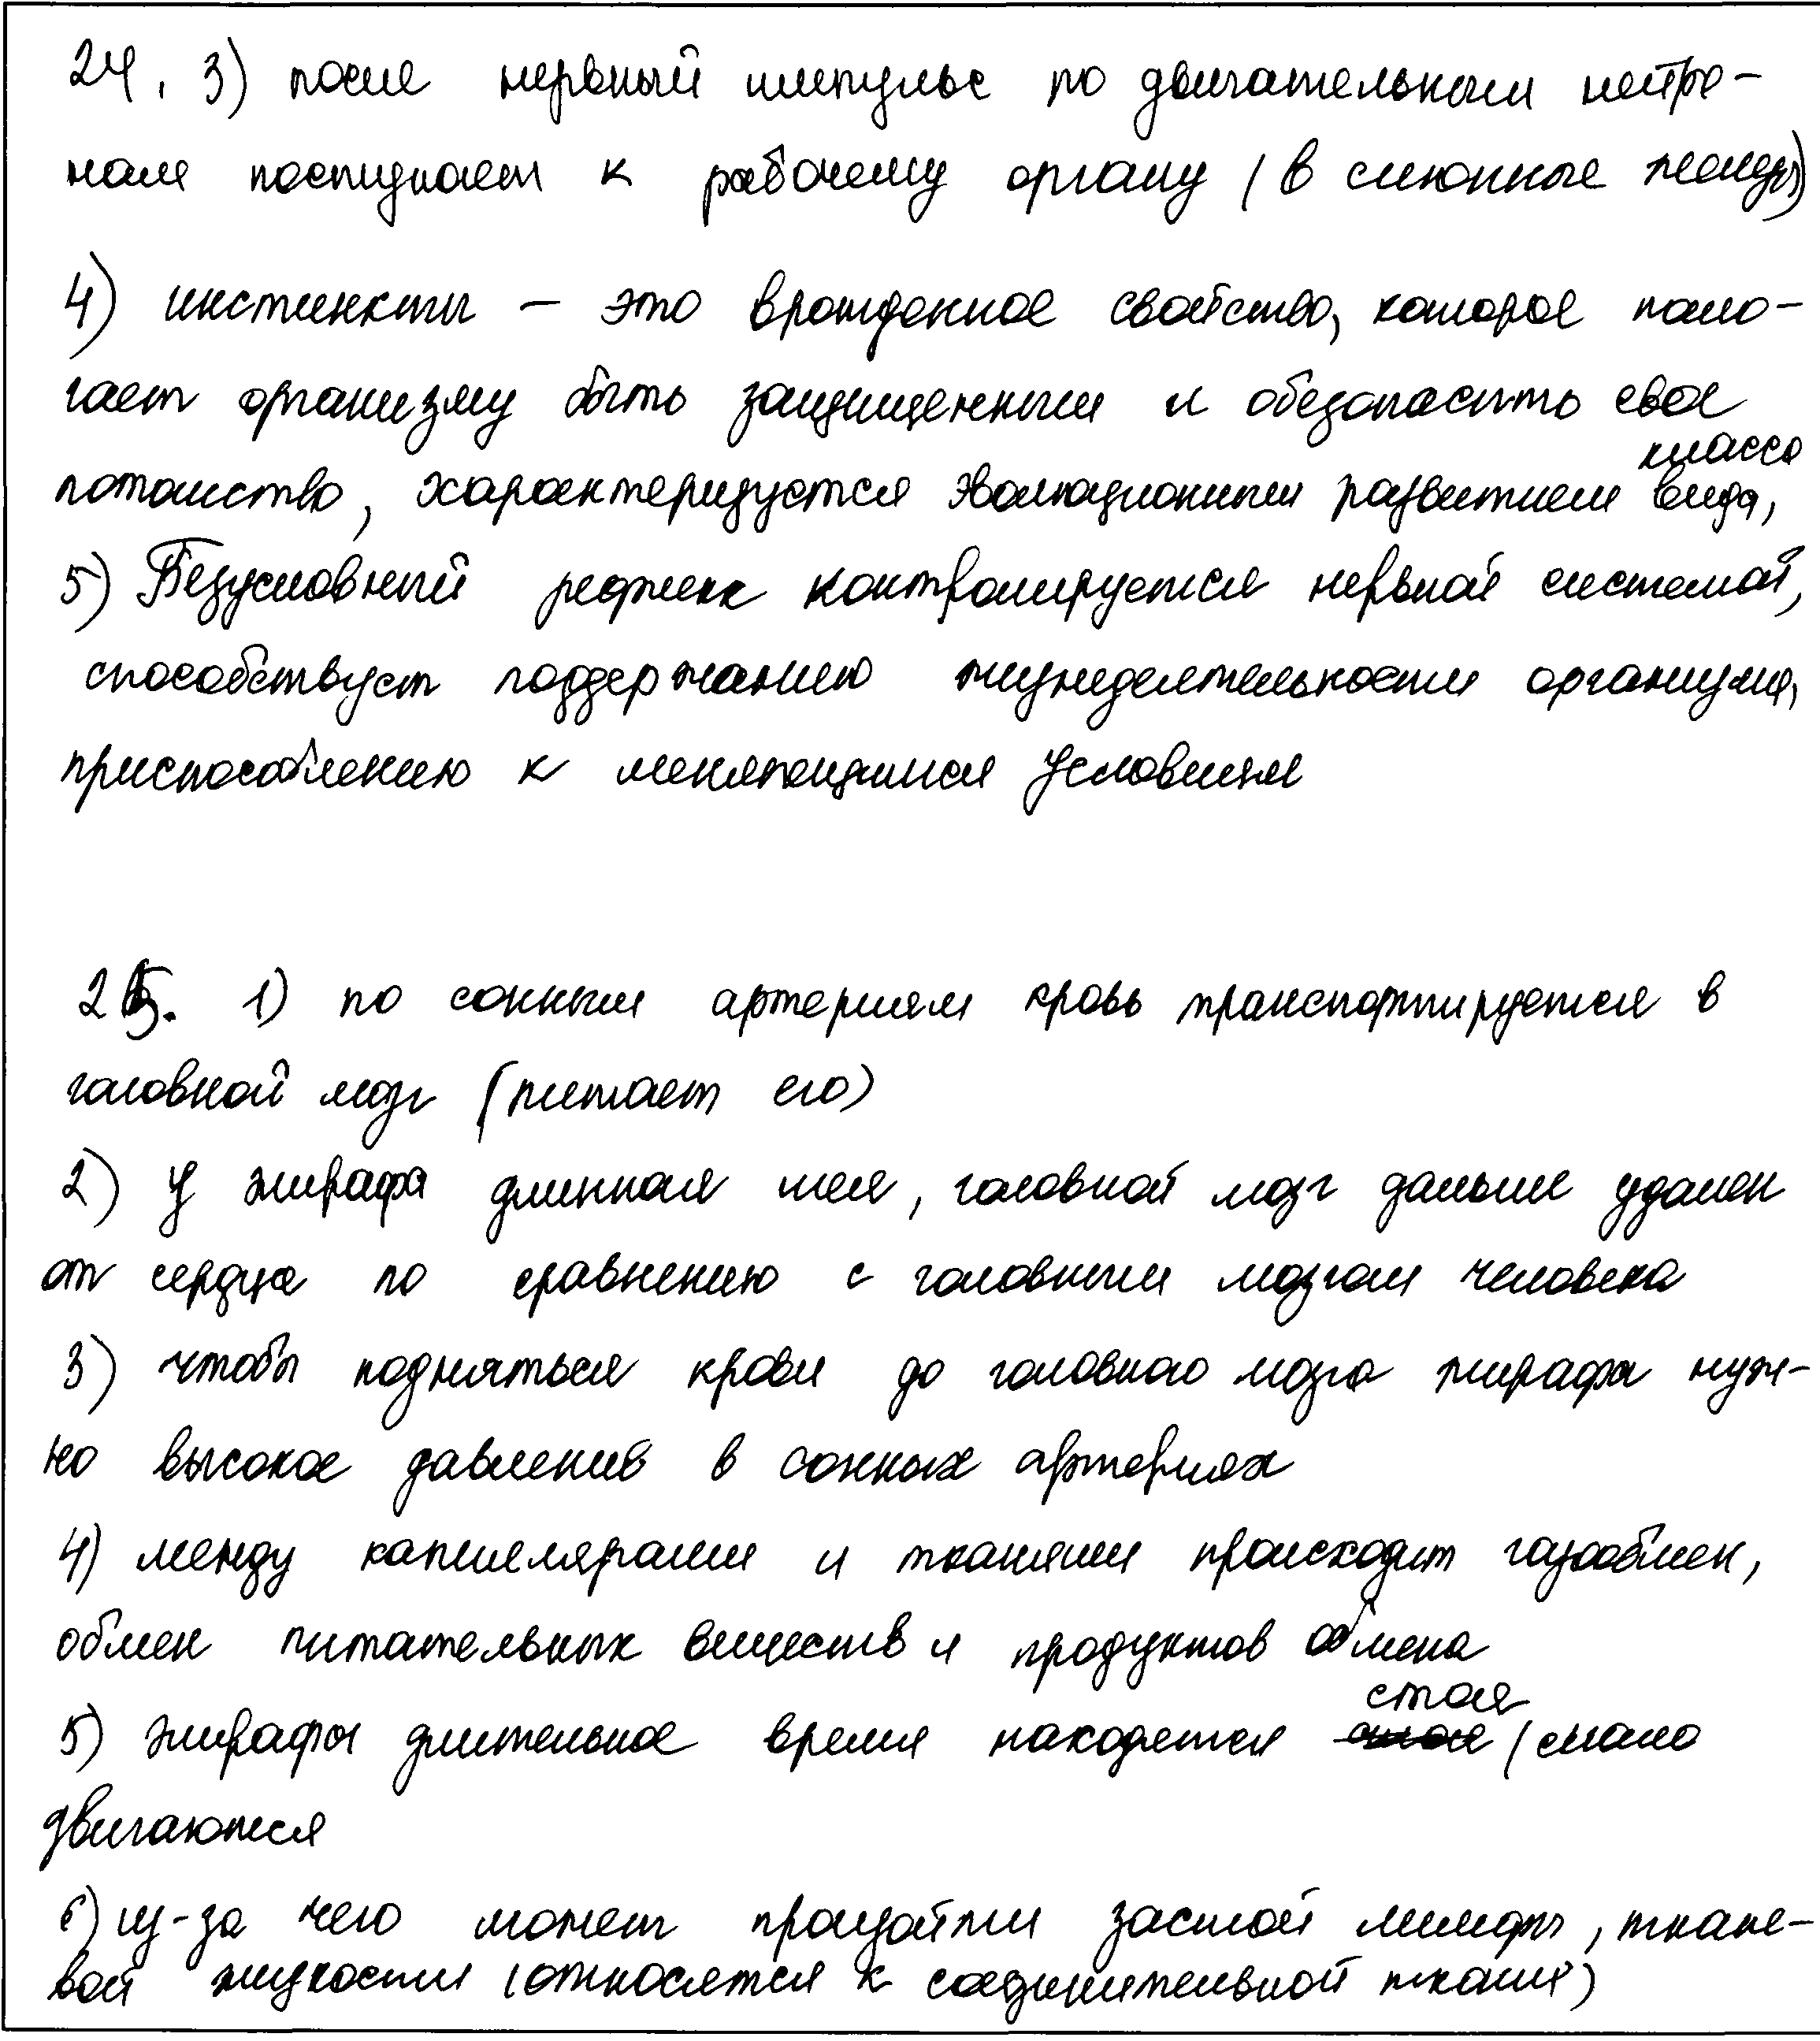 24. 3) после нервный импульс по двигательным нейро-
нам поступает к рабочему органу (в слюнные железы)
4) инстинкты – это врожденное свойство, которое помо-
гает организму быть защищенным и обезопасить свое
потомство, характеризуется эволюционным развитием вида,
класса
5) Безусловный рефлекс контролируется нервной системой,
способствует поддержанию жизнедеятельности организма,
приспособлению к меняющимся условиям
25. 1) по сонным артериям кровь транспортируется в
головной мозг (питает его)
2) У жирафа длинная шея, головной мозг дальше удален
от сердца по сравнению с головным мозгом человека
3) чтобы подняться крови до головного мозга жирафа нуж-
но высокое давление в сонных артериях
4) между капиллярами и тканями происходит газообмен,
обмен питательных веществ и продуктов обмена
5) жирафы длительное время находятся стоя (мало
двигаются
6) из-за чего может произойти застой лимфы, ткане-
вой жидкости (относятся к соединительной ткани)